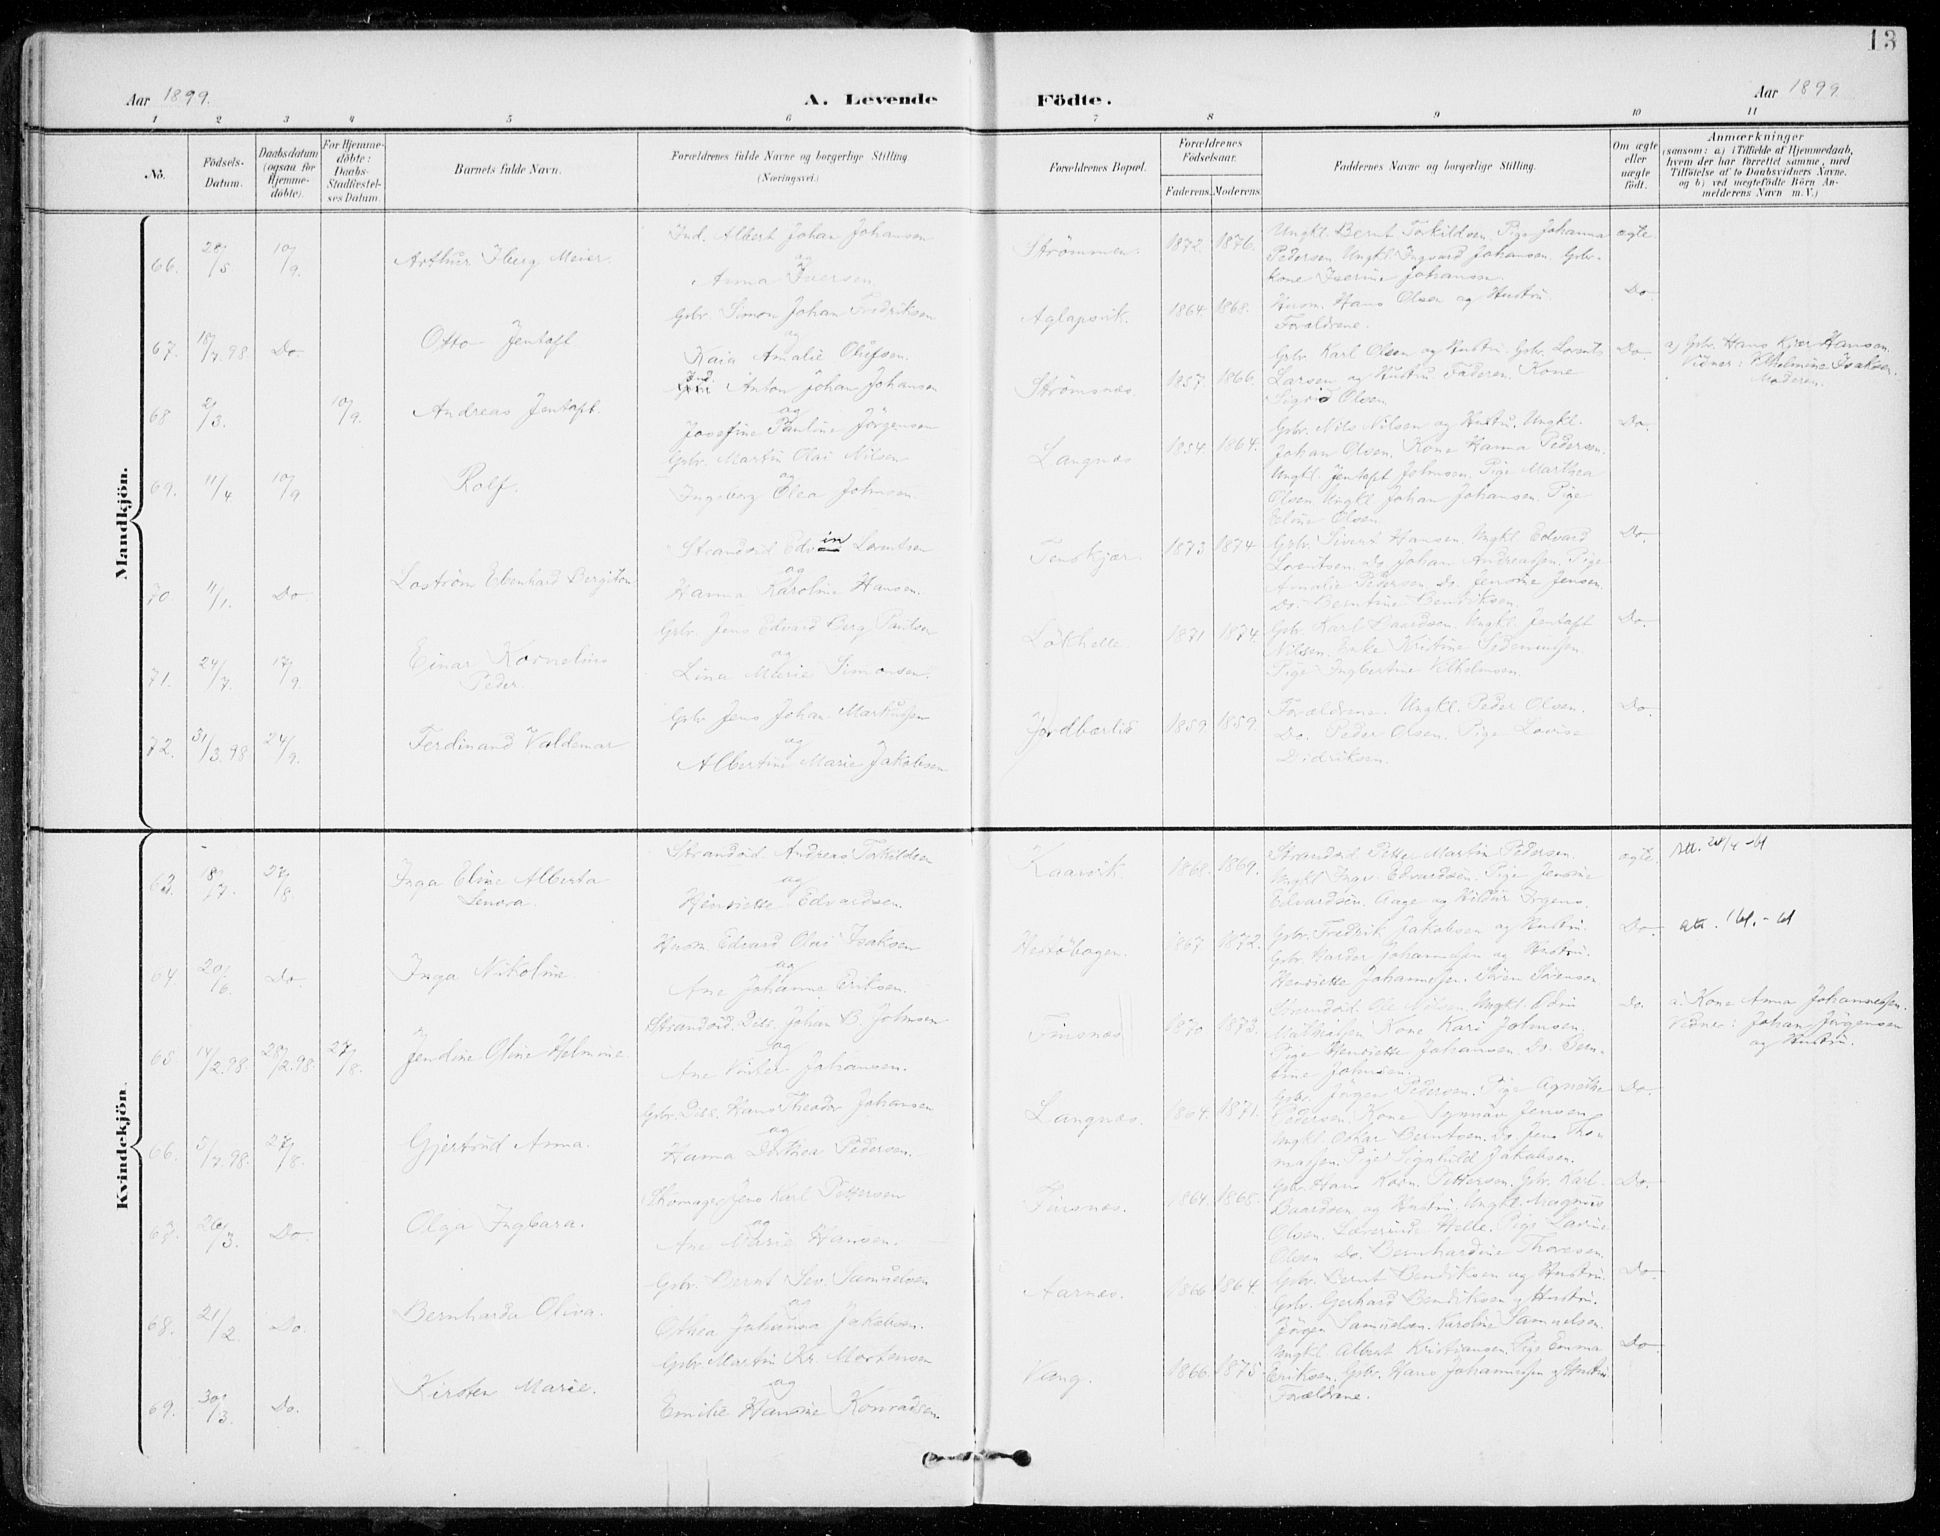 13
Aar 1899.
A. Levende
Födte.
Aar 1899
1 2 3 4 5 6 7 8 9 10 11
No.
Födsels-
Datum.
Daabsdatum
(ogsaa for
Hjemme-
döbte).
For Hjemme-
döbte:
Daabs-
Stadfæstel-
ses Datum.
Barnets fulde Navn.
Forældrenes fulde Navne og borgerlige Stilling
(Næringsvei.)
Forældrenes Bopæl.
Forældrenes
Födselsaar.
Faderens. Moderens.
Faddernes Navne og borgerlige Stilling.
Om ægte
eller
uægte
födt.
Anmærkninger
(saasom: a) i Tilfælde af Hjemmedaab,
hvem der har forrettet samme, med
Tilföielse af to Daabsvidners Navne,
og b) ved uægtefödte Börn An-
melderens Navn m. V.)
Mandkjön.
66. 28/5 10/9. Arthur Iberg Meier.
Ind. Albert Johan Johansen
og
Anna Iversen
Strömmen. 1872. 1876.
Ungkl. Bernt Torkildsen. Pige Johanna
Pedersen. Ungkl. Ingvard Johansen. Gbr.
kone Iverine Johansen.
ægte.
67. 18/7.98. Do. Otto Jentoft
Gbr. Simon Johan Fredriksen
og
Kaia Amalie Olufsen.
Aglapsvik. 1864. 1868.
Husm. Hans Olsen og Hustru.
Forældrene.
Do.
68. 2/3. 10/9. Andreas Jentoft.
Ind. Anton Johan Johansen
og
Josefine Pauline Jörgensen
Strömsnes. 1857. 1866.
Gbr. Karl Olsen og Hustru. Gbr. Lorents
Larsen og Hustru. Faderen. Kone
Sigrid Olsen.
Do.
a) Gbr. Hans Kjær Hansen.
Vidner: Vilhelmine Isaksen.
Moderen.
69. 11/4 10/9 Rolf.
Gbr. Martin Olai Nilsen
og
Ingeborg Olea Johnsen.
Langnes 1854. 1864.
Gbr. Nils Nilsen og Hustru. Ungkl.
Johan Olsen. Kone Hanna Pedersen.
Ungkl. Jentoft Johnsen. Pige Marthea
Olsen. Ungkl. Johan Johansen. Pige
Eline Olsen.
Do.
70 11/1. Do. Laström Ebenhard Bergiton
Strandsid. Edvin Lorentsen
og
Hanna Karoline Hansen.
Tenskjær. 1873 1874
Gbr. Sivert Hansen. Ungkl. Edvard
Lorentsen. do. Johan Andreassen. Pige
Amalie Pedersen. Do. Jensine Jensen.
Do. Berntine Bendiksen.
Do.
71. 24/7. 17/9. Einar Kornelius
Peder.
Gbr. Jens Edvard Berg Paulsen
og
Lina Marie Simonsen.
Lökhelle. 1871 1874.
Gbr. Karl Baardsen. Ungkl. Jentoft
Nilsen. Enke Kristine
Pige Ingbertine Vilhelmsen.
Do.
72. 31/3.98. 24/9. Ferdinand Valdemar
Gbr. Jens Johan Markussen
og
Albertine Marie Jakobsen
Jordbærlid 1859. 1859.
Forældrene. Ungkl. Peder Olsen.
Do. Peder Olsen. Pige Lovise
Didriksen.
Do.
Kvindekjön.
63. 18/7. 27/8. Inga Eline Alberta
Lenora.
Strandsid. Andreas Torkildsen
og
Henriette Edvardsen.
Kaarvik. 1868. 1869.
Strandsid. Petter Martin Pedersen.
Ungkl. Ingv. Edvardsen. Pige Jensine
Edvardsen. Aage og Hildur Irgens.
ægte.
Att. 28/4-61
64. 20/6. Do. Inga Nikoline
Husm. Edvard Olai Isaksen
og
Ane Johanne Eriksen.
Hestöhagen. 1867 1872.
Gbr. Fredrik Jakobsen og Hustru.
Gbr. Harder Johannessen og Hustru.
Henriette Johannessen. Sören Sörensen
Do.
65 14/2.98. 28/2.98. 27/8. Jendine Oline Helmine.
Strandsid. Dets. Johan B. Johnsen
og
Johansen.
Finsnes 1870 1873.
Strandsid. Ole Nilsen. Ungkl. Edvin
Mathissen. Kone Kari Johnsen.
Pige Henriette Johansen. Do. Bern-
tine Johnsen.
Do.
a. Kone Anna Johannessen.
Vidner: Johan Jörgensen
og Hustru.
66. 5/7.98. 27/8. Gjertrud Anna.
Gbr. Dets. Hans Theodor Johansen
og
Hanna Dorthea Pedersen.
Langnes. 1864. 1871.
Gbr. Jörgen Pedersen. Pige Agnethe
Pedersen. Kone Synnöv Jensen
Ungkl. Oskar Berntsen. Do. Jens Tho-
massen. Pige Signhild Jakobsen.
Do.
67. 26/3. Do. Olga Ingbara.
Skomager Jens Karl Pettersen
og
Ane Marie Hansen.
Finsnes. 1864. 1865.
Gbr. Hans Korn. Pettersen. Gbr. Karl
Baardsen og Hustru. Ungkl. Magnus
Olsen. Helle. Pige Lavine
Olsen. Do. Bernhardine Thoresen.
Do.
68. 21/2. Do. Bernharda Oliva.
Gbr. Bernt Sev. Samuelsen
og
Othea Johanna Jakobsen.
Aarnes. 1866 1864.
Gbr. Bernt Bendiksen og Hustru.
Gbr. Gerhard Bendiksen & Hustru.
Jörgen Samuelsen. Karoline Samuelsen.
Do.
69. 30/3. Do. Kirsten Marie.
Gbr. Martin Kr. Mortensen
og
Emilie Hansine Konradsen.
Vang. 1866. 1875.
Ungkl. Albert Kristiansen. Pige Emma
Eriksen. Gbr. Hans Johannessen & Hustru
Forældrene.
Do.